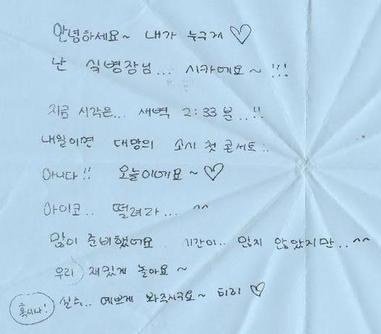 안녕하세요~ 내가 누구게 ♡
난 싴병장님... 시카에요~ !!!
지금 시각은... 새벽 2:33분..!!
내일이면 대망의 소시 첫 콘서트..
아니다!! 오늘이에요~ ♡
아이코.. 떨려라... ^^
많이 준비했어요 시간이.. 있지 않았지만..^^
우리 재밌게 놀아요~
혹시나! 실수.. 예쁘게 봐주시구요~ 티히 ♡